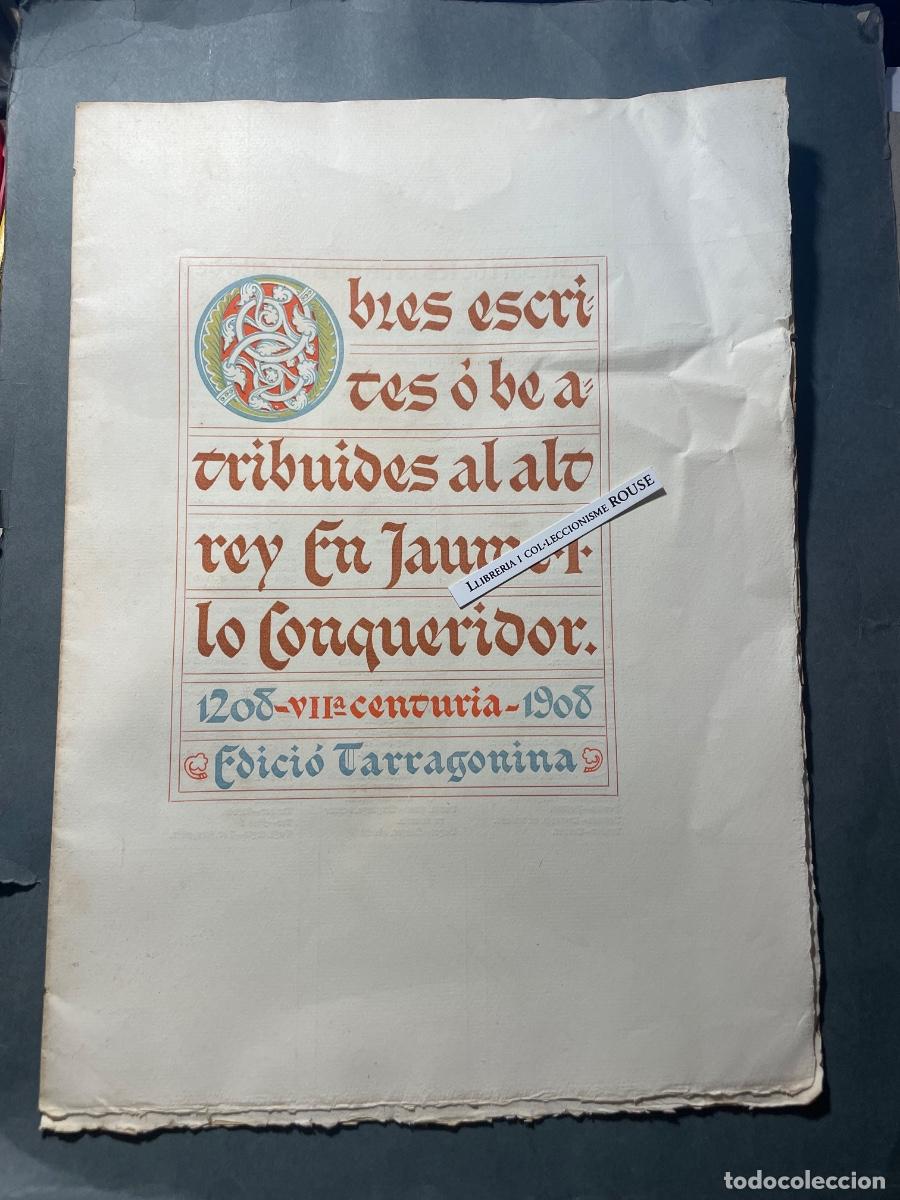 Obres escri-
tes ó be a-
tribuides al alt
rey En Jaume I
lo Conqueridor.
1208-VIIª centuria-1908
Edició Tarragonina
LLIBRERIA I COL·LECCIONISME ROUSE
todocoleccion